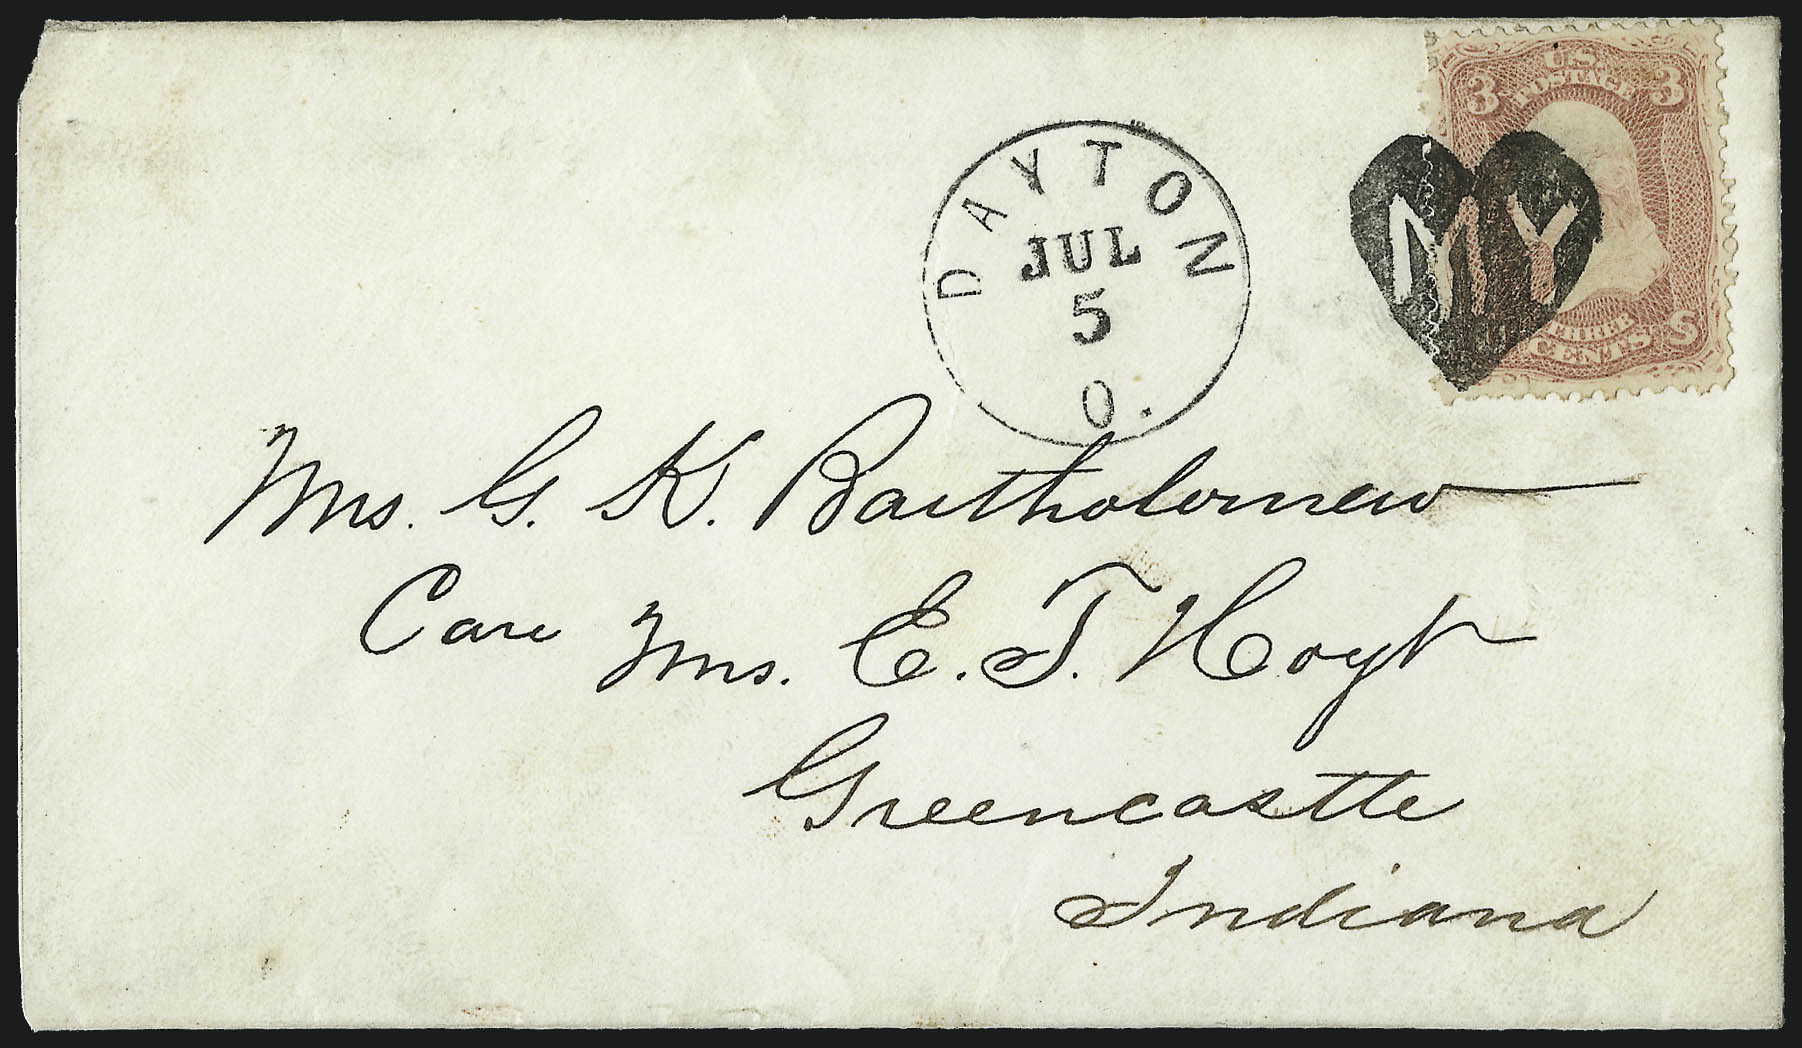 U.S.
POSTAGE
3 3
MY
THREE
CENTS
DAYTON
JUL
5
O.
Mrs. G. K. Bartholomew
Care Mrs. E. T. Hoyt
Greencastle
Indiana